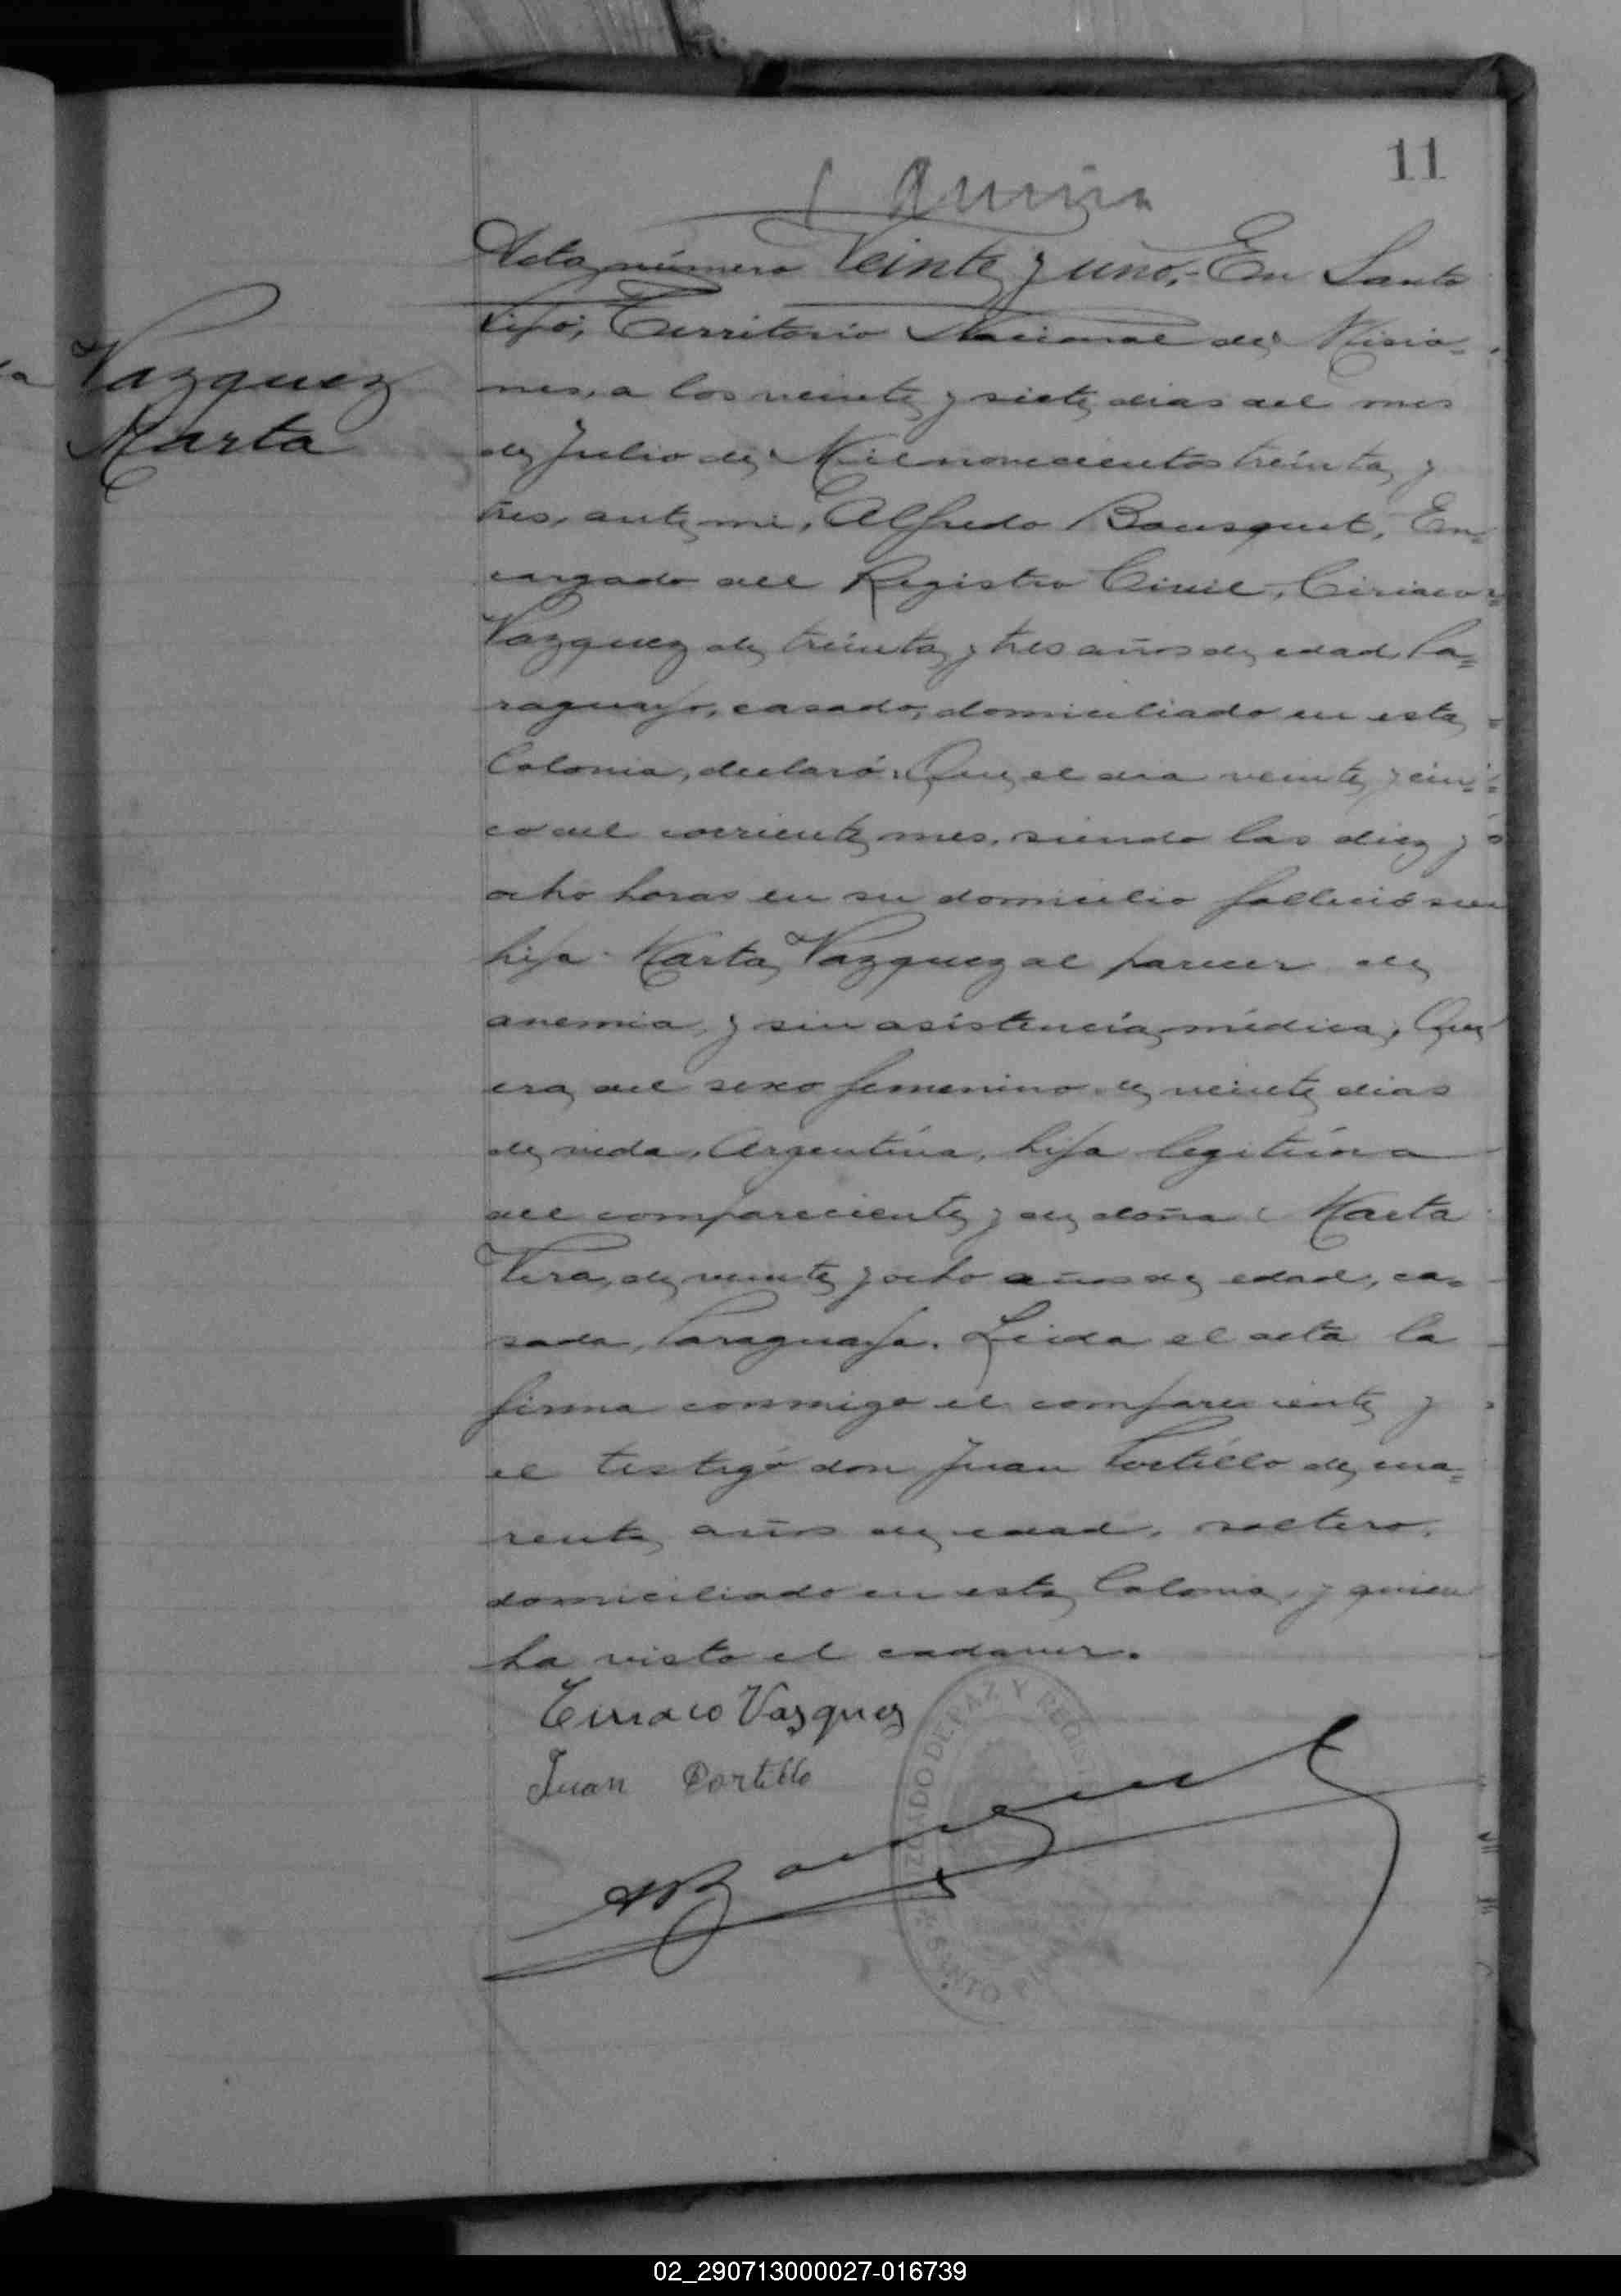 11
Acta número Veinte y uno.- En Santo
Pipó, Territorio Nacional de Misio-
nes, a los veinte y siete dias del mes
de Julio de Mil novecientos treinta y
tres, ante mi, Alfredo Bousquet, En-
cargado del Registro Civil, Ciriaco
Vazquez de treinta y tres años de edad Pa-
raguayo, casado, domiciliado en esta
Colonia, declaró: Que el dia veinte y cin-
co del corriente mes, siendo las diez y
ocho horas en su domicilio falleció su
hija Marta Vazquez al parecer de
anemia y sin asistencia médica, Que
era del sexo femenino de veinte dias
de vida, Argentina, hija legitima
del compareciente y de doña Marta
Vera, de veinte y ocho años de edad, ca-
sada, Paraguaya. Leida el acta la
firma conmigo el compareciente y
el testigo don Juan Portillo de cua-
renta años de edad, soltero,
domiciliado en esta Colonia, y quien
ha visto el cadaver.
Vazquez
Marta
Ciriaco Vasques
Juan Portillo
ABousquet
JUZGADO DE PAZ Y REGIS
SANTO PI
02_290713000027-016739